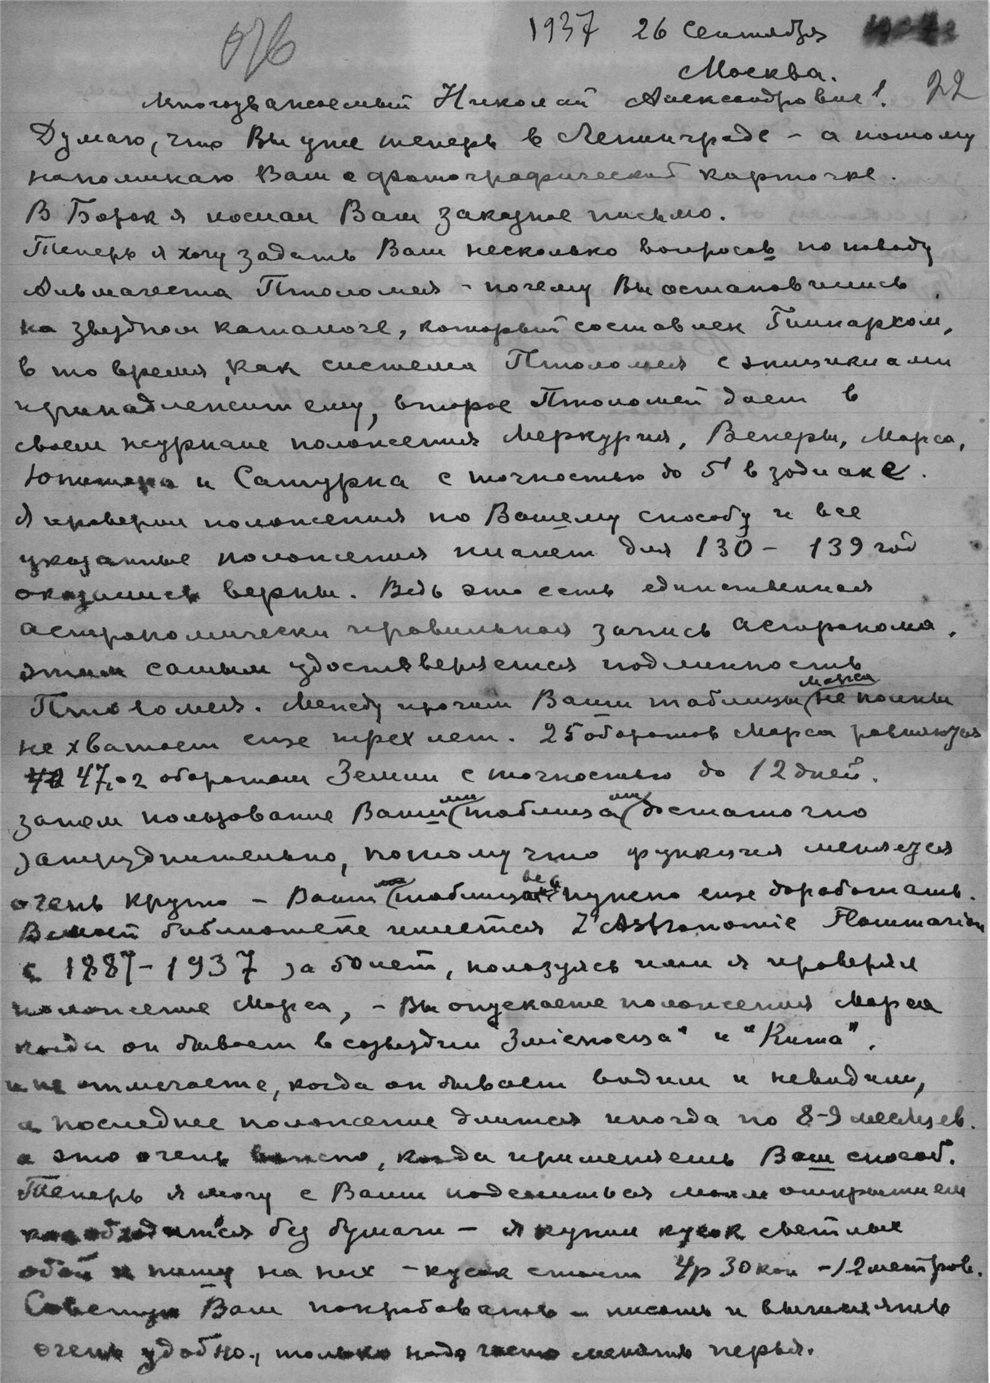 1937 26 Сентября
Москва.
22
Многоуважаемый Николай Александрович!
Думаю, что Вы уже теперь в Ленинграде – а потому
напоминаю Вам о фотографической карточке.
В Борок я послал Вам заказное письмо.
Теперь я хочу задать Вам несколько вопросов по поводу
Альмагеста Птоломея – почему Вы остановились
на звездном каталоге, который составлен Гиппархом,
в то время, как система Птоломея с эпициклами
принадлежит ему, второе Птоломей дает в
своем журнале положения Меркурия, Венеры, Марса,
Юпитера и Сатурна с точностью до 5' в зодиаке.
Я проверил положения по Вашему способу и все
указанные положения планет для 130 – 139 год
оказались верны. Ведь это есть единственная
астрономически правильная запись астронома,
этим самым удостоверяется подлинность
Птоломея. Между прочим Ваши таблицы Марса не полны
не хватает еще трех лет. 25 оборотов Марса равняются
47,02 оборотам Земли с точностью до 12 дней.
затем пользование Вашими таблицами достаточно
затруднительно, потому что функция меняется
очень круто – Ваши таблицы нужно еще доработать.
В моей библиотеке имеется L'Astronomie Flammarion
с 1887–1937 за 50 лет, пользуясь ими я проверял
положение Марса, – Вы опускаете положения Марса
когда он бывает в созвездии Змієносца" и "Кита".
и не отмечаете, когда он бывает видим и невидим,
а последнее положение длится иногда по 8-9 месяцев.
а это очень важно, когда применяешь Ваш способ.
Теперь я могу с Вами поделиться моим открытием
как обходиться без бумаги – я купил кусок светлых
обой и пишу на них – кусок стоит 4р 30 коп – 12 метров.
Советую Вам попробовать – писать и вычислять
очень удобно, только надо часто менять перья.